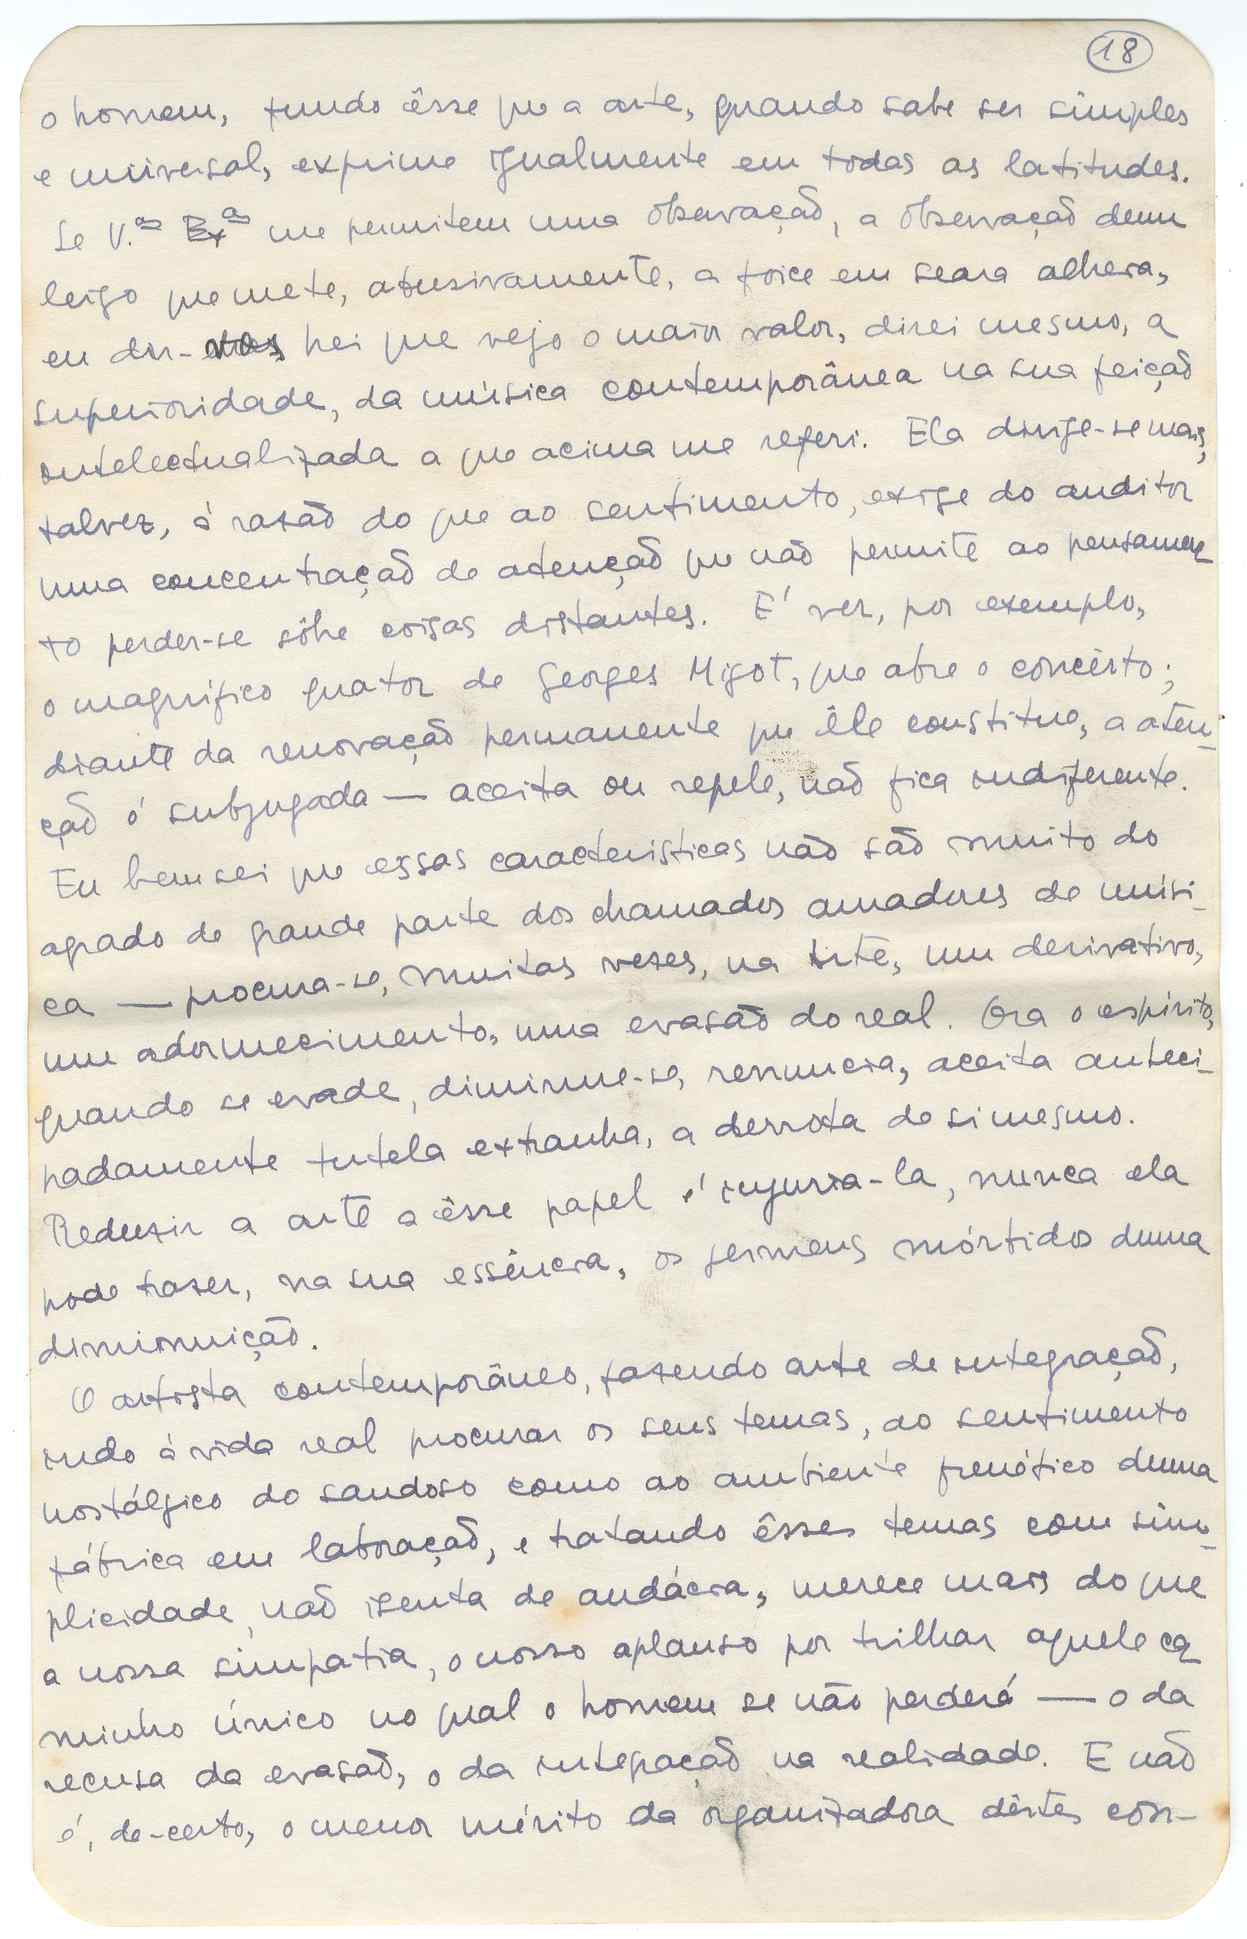 18
o homem, fundo êsse que a arte, quando sabe ser simples
e universal, exprime igualmente em todas as latitudes.
Se V.as Ex.as me permitem uma observação, a observação dum
leigo que mete, abusivamente, a foice em seara alheia,
eu dir-vos hei que vejo o maior valor, direi mesmo, a
superioridade, da música contemporânea na sua feição
intelectualizada a que acima me referi. Ela dirige-se mais,
talvez, à razão do que ao sentimento, exige do auditor
uma concentração de atenção que não permite ao pensamen-
to perder-se sôbre coisas distantes. É ver, por exemplo,
o magnífico quator de Georges Migot, que abre o concêrto;
diante da renovação permanente que êle constitue, a aten-
ção é subjugada — aceita ou repele, não fica indiferente.
Eu bem sei que essas caracteristicas não são muito do
agrado de grande parte dos chamados amadores de músi-
ca — procura-se, muitas vezes, na arte, um derivativo,
um adormecimento, uma evasão do real. Ora o espírito,
quando se evade, diminue-se, renuncia, aceita anteci-
padamente tutela extranha, a derrota de si mesmo.
Reduzir a arte a êsse papel é injuria-la, nunca ela
pode trazer, na sua essência, os germens mórbidos duma
diminuição.
O artista contemporâneo, fazendo arte de integração,
indo à vida real procurar os seus temas, ao sentimento
nostálgico do saudoso como ao ambiente frenético duma
fábrica em laboração, e tratando êsses temas com sim-
plicidade, não isenta de audácia, merece mais do que
a nossa simpatia, o nosso aplauso por trilhar aquele ca-
minho único no qual o homem se não perderá — o da
recusa da evasão, o da integração na realidade. E não
é, de-certo, o menor mérito da organizadora dêstes con-